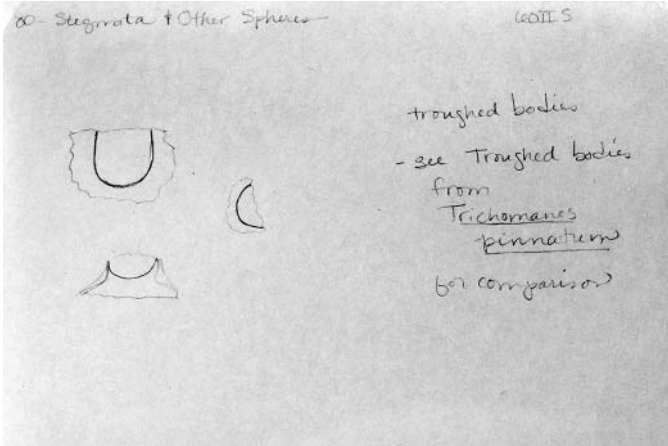 80 - Stegmata & Other Spheres
troughed bodies
- see Troughed bodies
from
Trichomanes
pinnatum
for comparison